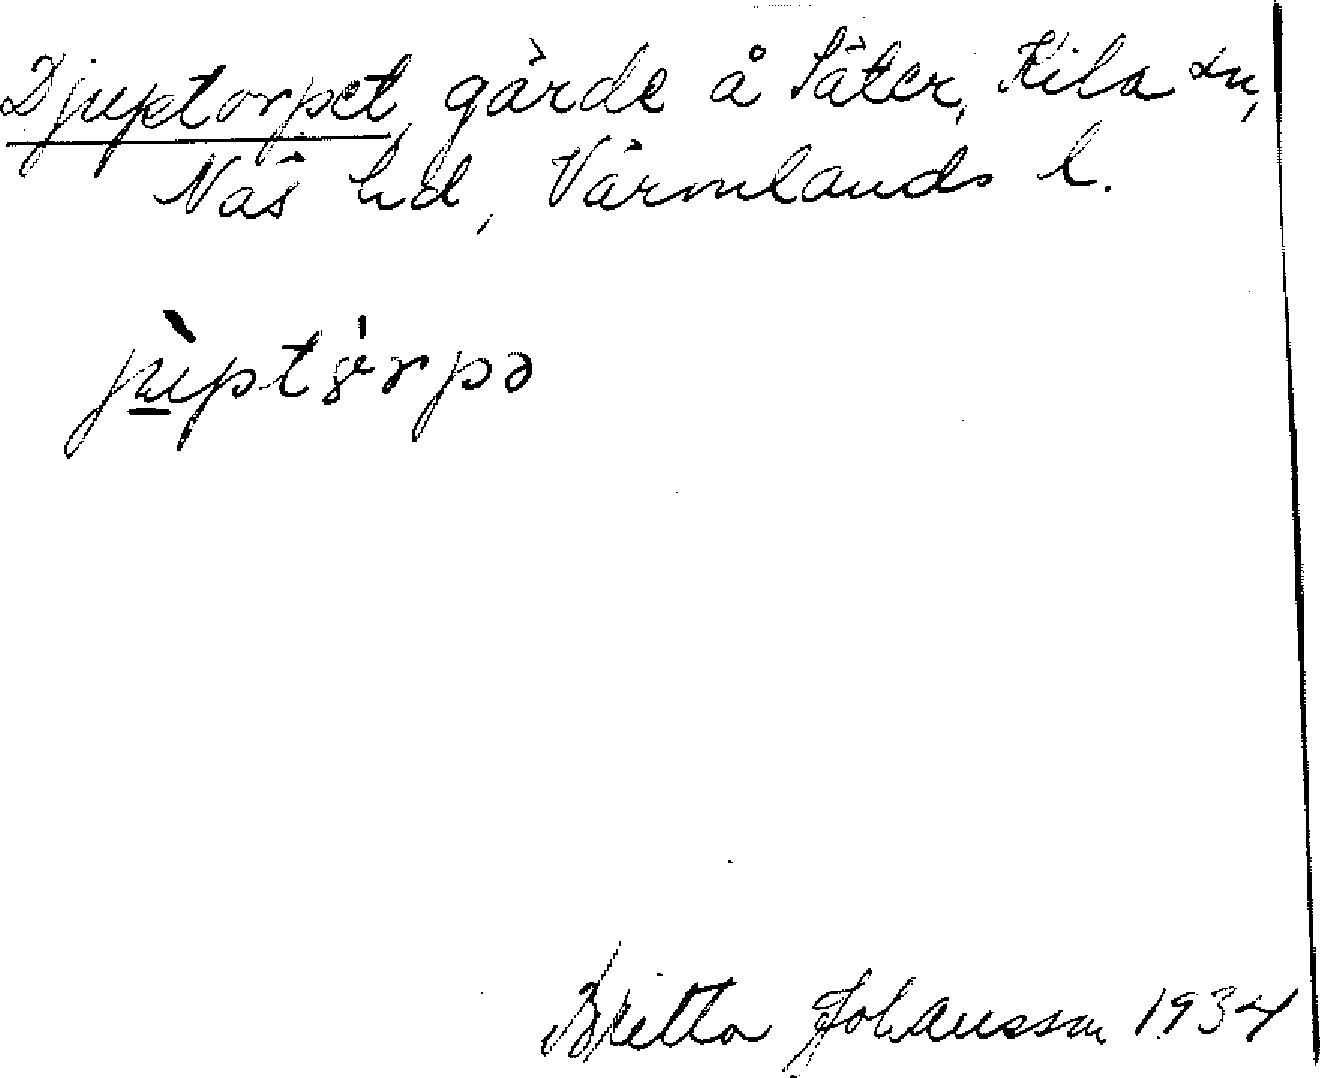 Djuptorpet, gärde å Säter, Kila sn,
Näs hd, Värmlands l.
jùptórpə
Britta Johansson 1934